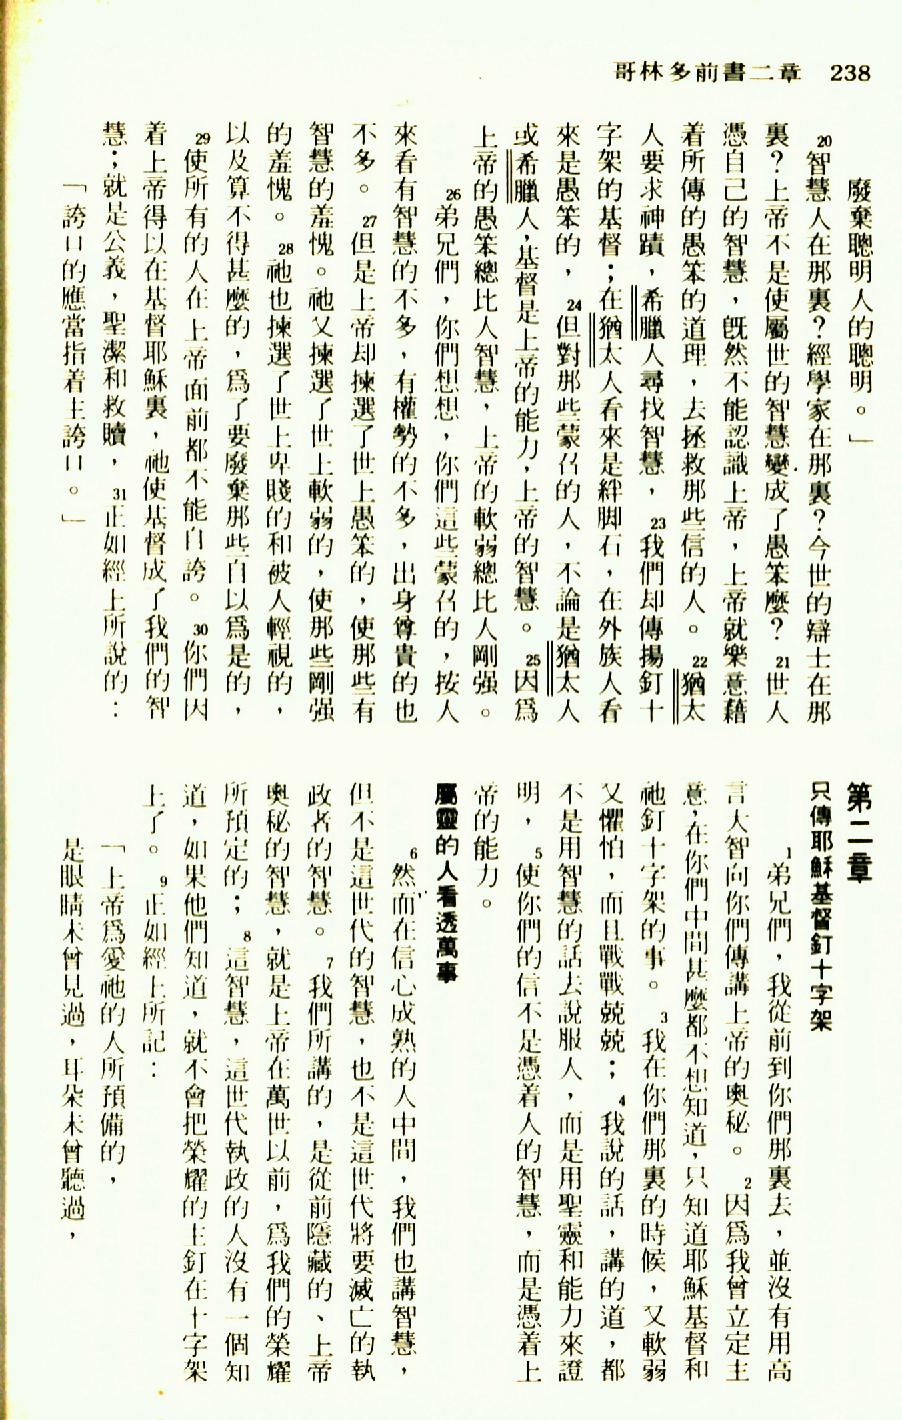 哥林多前書二章 238
廢棄聰明人的聰明。」
20智慧人在那裏?經學家在那裏?今世的辯士在那
裏?上帝不是使屬世的智慧變成了愚笨麼? 21世人
憑自己的智慧,旣然不能認識上帝,上帝就樂意藉
着所傳的愚笨的道理,去拯救那些信的人。 22猶太
人要求神蹟,希臘人尋找智慧, 23我們却傳揚釘十
字架的基督;在猶太人看來是絆脚石,在外族人看
來是愚笨的, 24但對那些蒙召的人,不論是猶太人
或希臘人,基督是上帝的能力,上帝的智慧。 25因爲
上帝的愚笨總比人智慧,上帝的軟弱總比人剛强。
26弟兄們,你們想想,你們這些蒙召的,按人
來看有智慧的不多,有權勢的不多,出身尊貴的也
不多。 27但是上帝却揀選了世上愚笨的,使那些有
智慧的羞愧。祂又揀選了世上軟弱的,使那些剛强
的羞愧。 28祂也揀選了世上卑賤的和被人輕視的,
以及算不得甚麼的,爲了要廢棄那些自以爲是的,
29使所有的人在上帝面前都不能自誇。 30你們因
着上帝得以在基督耶穌裏,祂使基督成了我們的智
慧;就是公義,聖潔和救贖, 31正如經上所說的:
「誇口的應當指着主誇口。」
第二章
只傳耶穌基督釘十字架
1弟兄們,我從前到你們那裏去,並沒有用高
言大智向你們傳講上帝的奧秘。 2因爲我曾立定主
意,在你們中間甚麼都不想知道,只知道耶穌基督和
祂釘十字架的事。 3我在你們那裏的時候,又軟弱
又懼怕,而且戰戰兢兢; 4我說的話,講的道,都
不是用智慧的話去說服人,而是用聖靈和能力來證
明, 5使你們的信不是憑着人的智慧,而是憑着上
帝的能力。
屬靈的人看透萬事
6然而在信心成熟的人中間,我們也講智慧,
但不是這世代的智慧,也不是這世代將要滅亡的執
政者的智慧。 7我們所講的,是從前隱藏的、上帝
奧秘的智慧,就是上帝在萬世以前,爲我們的榮耀
所預定的; 8這智慧,這世代執政的人沒有一個知
道,如果他們知道,就不會把榮耀的主釘在十字架
上了。 9正如經上所記:
「上帝爲愛祂的人所預備的,
是眼睛未曾見過,耳朵未曾聽過,